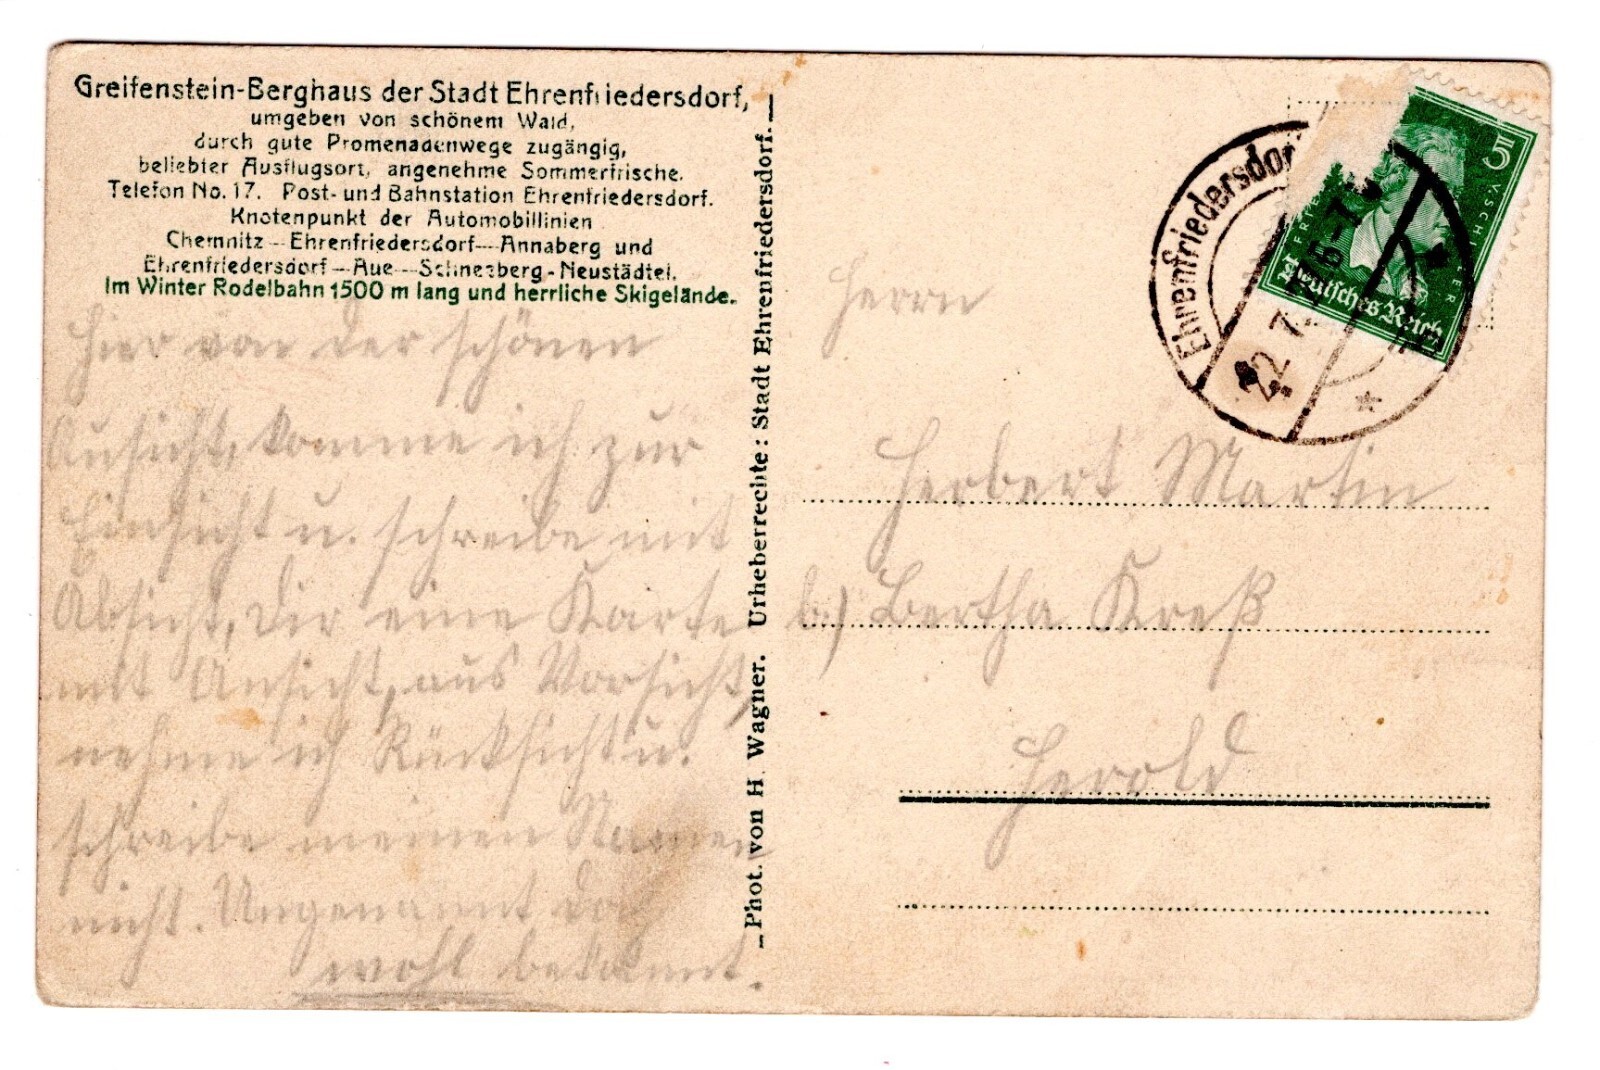 Greifenstein-Berghaus der Stadt Ehrenfriedersdorf,
umgeben von schönem Wald,
durch gute Promenadenwege zugängig,
beliebter Ausflugsort, angenehme Sommerfrische.
Telefon No. 17. Post- und Bahnstation Ehrenfriedersdorf.
Knotenpunkt der Automobillinien
Chemnitz—Ehrenfriedersdorf—Annaberg und
Ehrenfriedersdorf—Aue—Schneeberg-Neustädtel.
Im Winter Rodelbahn 1500 m lang und herrliche Skigelände.
Hier von der schönen
Aussicht, komme ich zur
Einsicht u. schreibe mit
Absicht, Dir eine Karte
mit Ansicht, aus Vorsicht,
nehme ich Rücksicht u.
schreibe meinen Namen
nicht. Ungenannt doch
wohl bekannt.
Phot. von H. Wagner. Urheberrechte: Stadt Ehrenfriedersdorf.
Ehrenfriedersdorf
22.7.
5
Deutsches Reich
Herrn
Herbert Martin
b/ Bertha Kreß
Herold